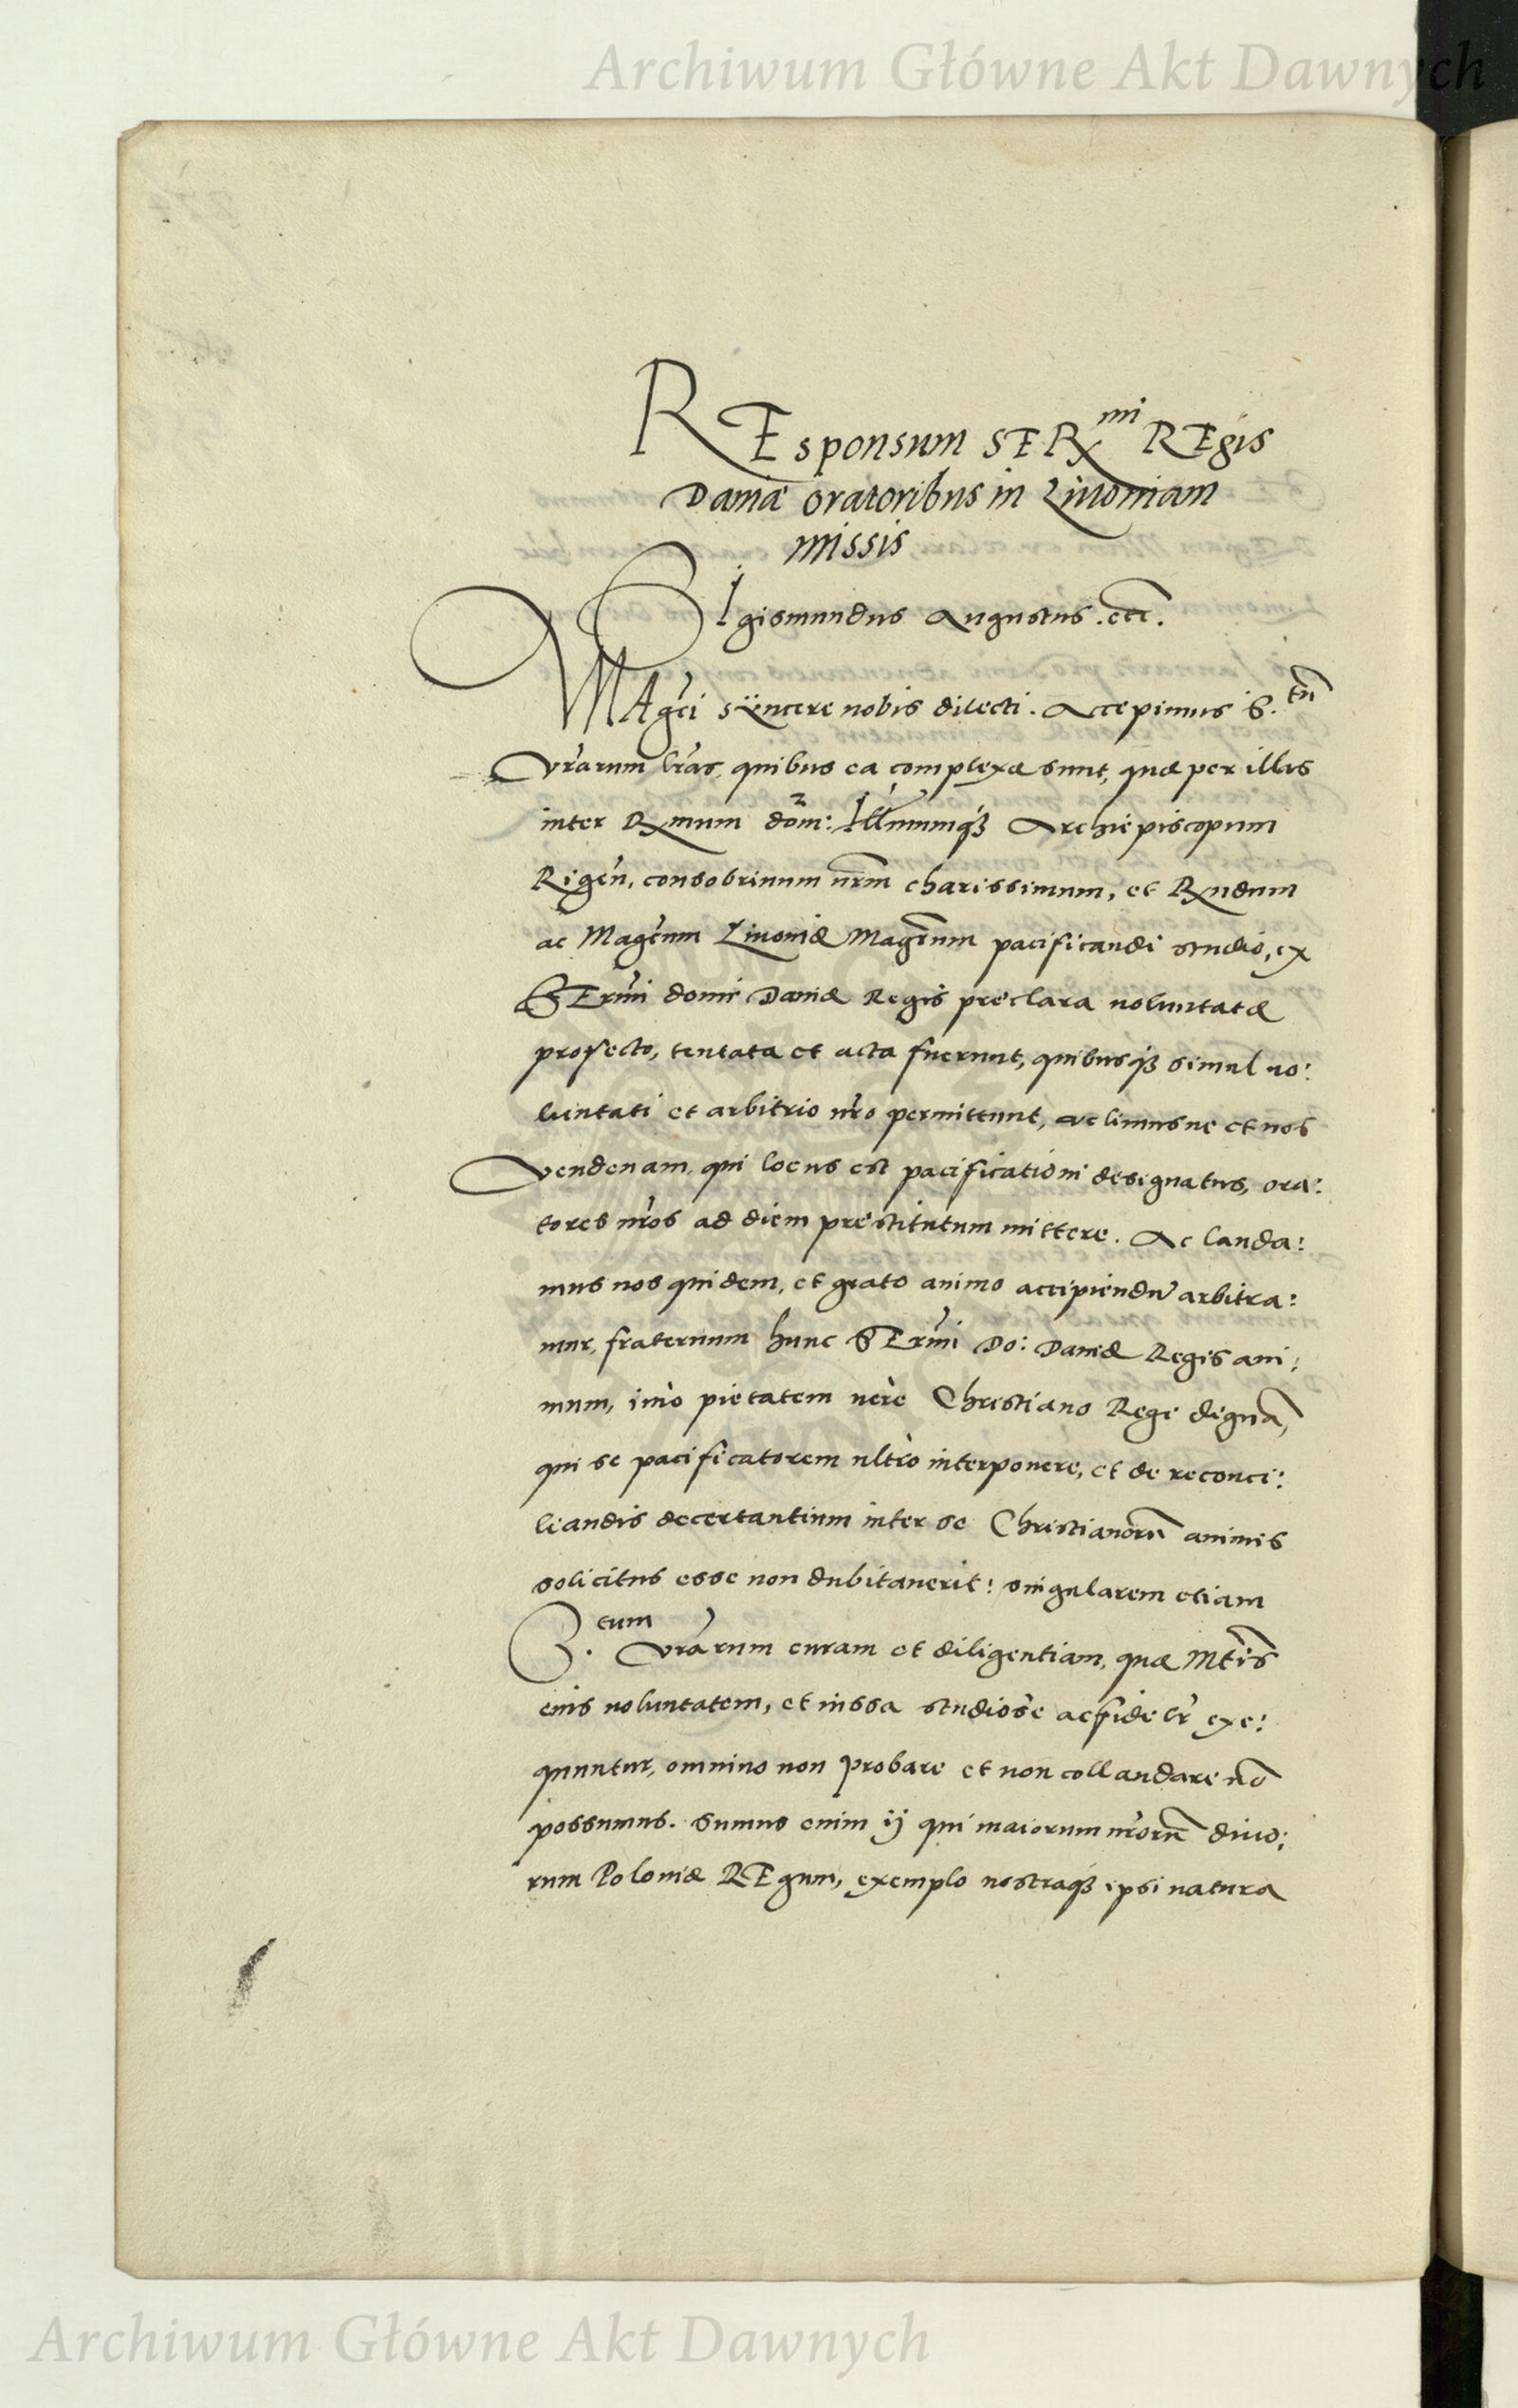 Archiwum Główne Akt Dawnych
REsponsum SERmi REgis
Daniæ oratoribus in Liuoniam
missis
SIgismundus Augustus. etc.
MAgci sÿncere nobis dilecti. Accepimus S.tũ
Vrarum lras, quibus ea complexæ sunt, quæ per illas
inter Rxmum dom: Illmumq3 Archiepiscopum
Rigen, consobrinum nrm charissimum, et Rxndum
ac Magcum Liuoniæ Magrum pacificandi studio, ex
SErmi domi Daniæ Regis preclara uoluntatæ
profecto, tentata et acta fuerunt, quibusq3 simul uo:
luntati et arbitrio nro permittunt, uelimusne et nos
Vendenam, qui locus est pacificationi designatus, ora:
tores nros ad diem prestitutum mittere. Ac lauda:
mus nos quidem, et grato animo accipiendũ arbitra:
mur, fraternum hunc SErmi Do: Daniæ Regis ani:
mum, imò pietatem uerè Christiano Rege dignã,
qui se pacificatorem ultrò interponere, et de reconci:
liandis decertantium inter se Christianorũ animis
solicitus esse non dubitauerit: singularem etiam
S.tum Vrarum curam et diligentiam, quæ Mtis
eius uoluntatem, et iussa studiosè ac fidelr exe:
quuntur, omnino non probare et non collaudare nõ
possumus. Sumus enim ij qui maiorum nrorũ diuo:
rum Poloniæ REgum, exemplo nostraq3 ipsi natura
Archiwum Główne Akt Dawnych